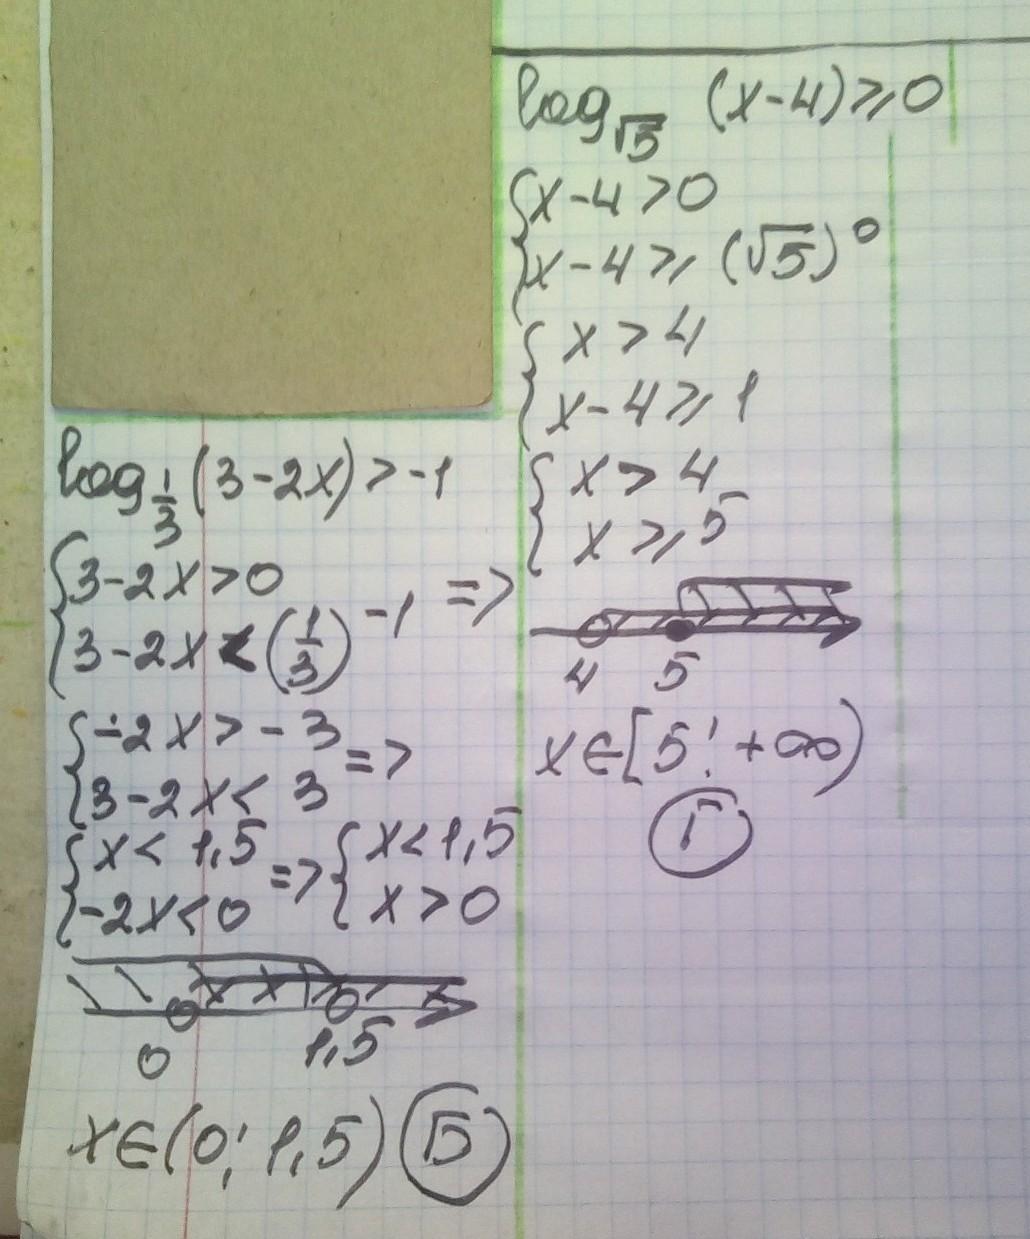 log_{1/3} (3-2x) > -1
{3-2x>0
{3-2x<(1/3)^{-1} =>
{-2x>-3
{3-2x<3 =>
{x<1,5
{-2x<0 => {x<1,5
{x>0
0 1,5
x∈(0; 1,5) Б
log_{√5} (x-4)⩾0
{x-4>0
{x-4⩾(√5)^0
{x>4
{x-4⩾1
{x>4
{x⩾5
4 5
x∈[5; +∞)
Г